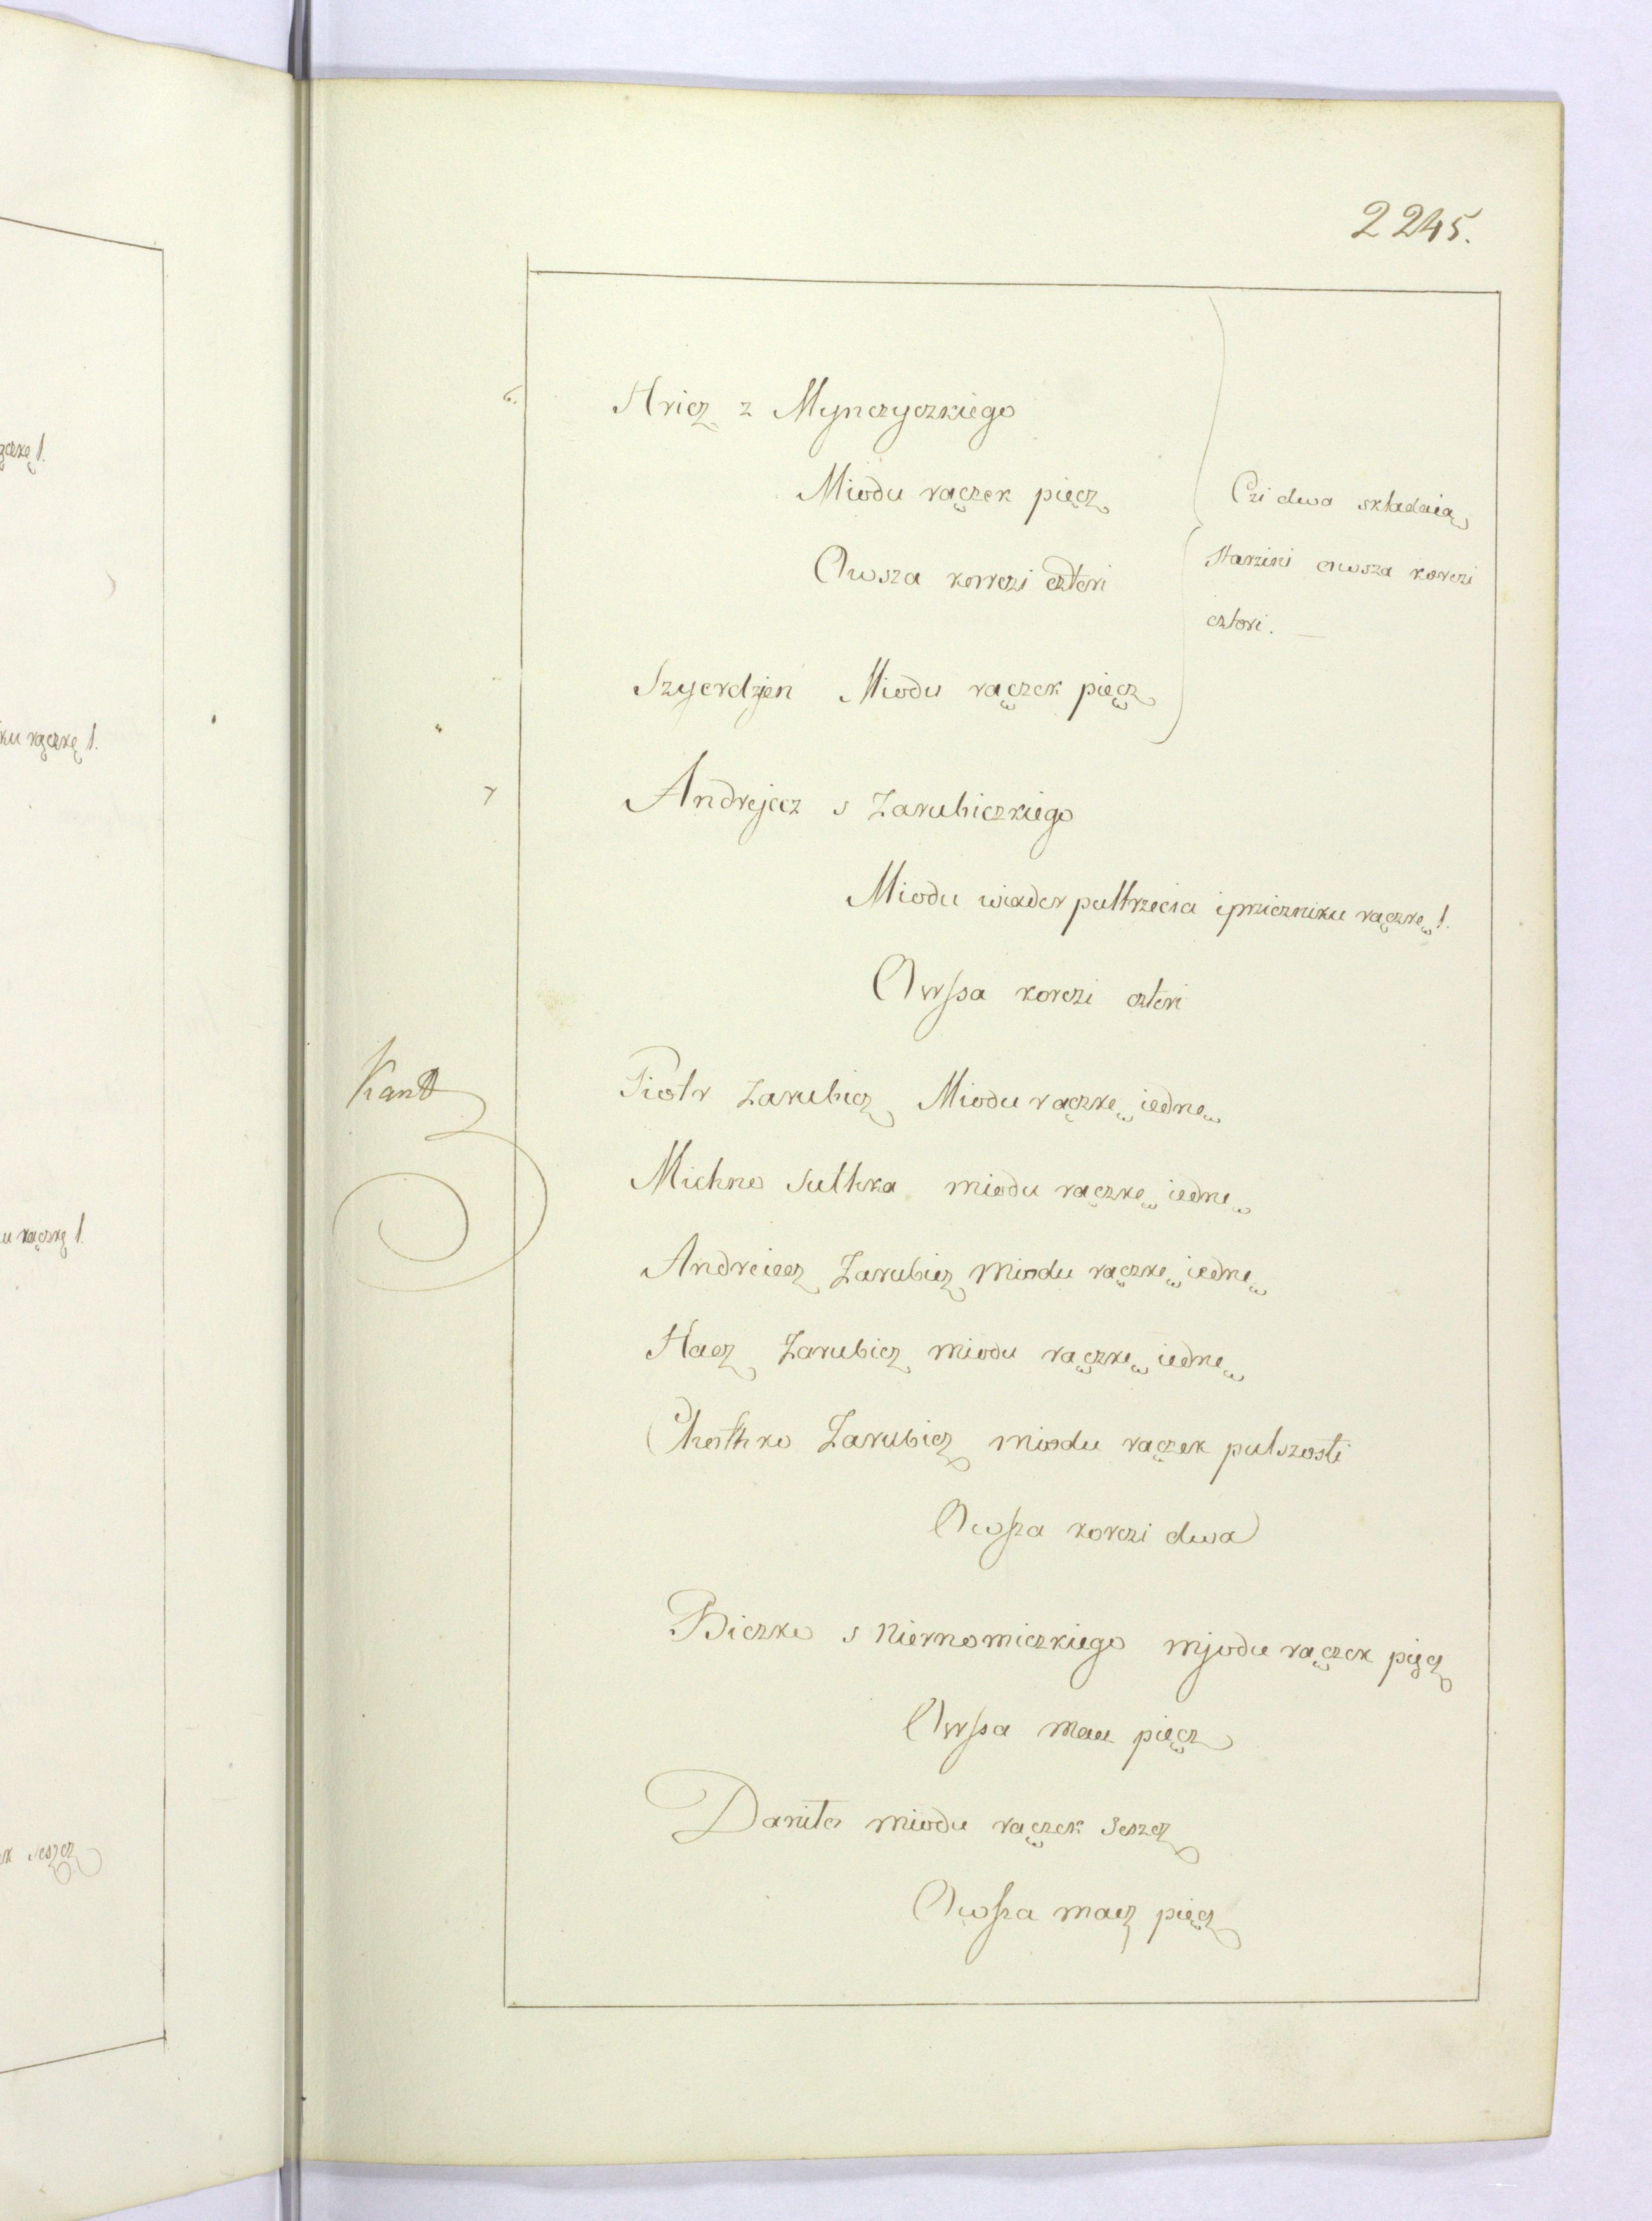 2245.
6. Hricz z Mynczyczkiego
Miodu rączek pięcz
Owsza korczi czteri
Czi dwa składaią
starzini owsza korczi
cztori. —
Szyerdzien Miodu rączek pięcz
7 Andrejecz s Zarubiczkiego
Miodu wiader pułtrzecia i prziczniku rączkę 1.
Owssa korczi czteri
Kantt
Piotr Zarubicz Miodu rączkę iednę
Michno Sulhka miodu rączkę iednę
Andreiecz Zarubicz miodu rączkę iednę
Hacz Zarubicz miodu rączkę iednę
Chothko Zarubicz miodu rączek pulszosti
Owsza korczi dwa
Biczko s Niernomiczkiego mjodu rączek pięcz
Owssa macz pięcz
Daniło miodu rączek seszcz
Owsza macz pięcz
ączkę 1.
ku rączkę 1.
u rączkę 1.
ek seszcz